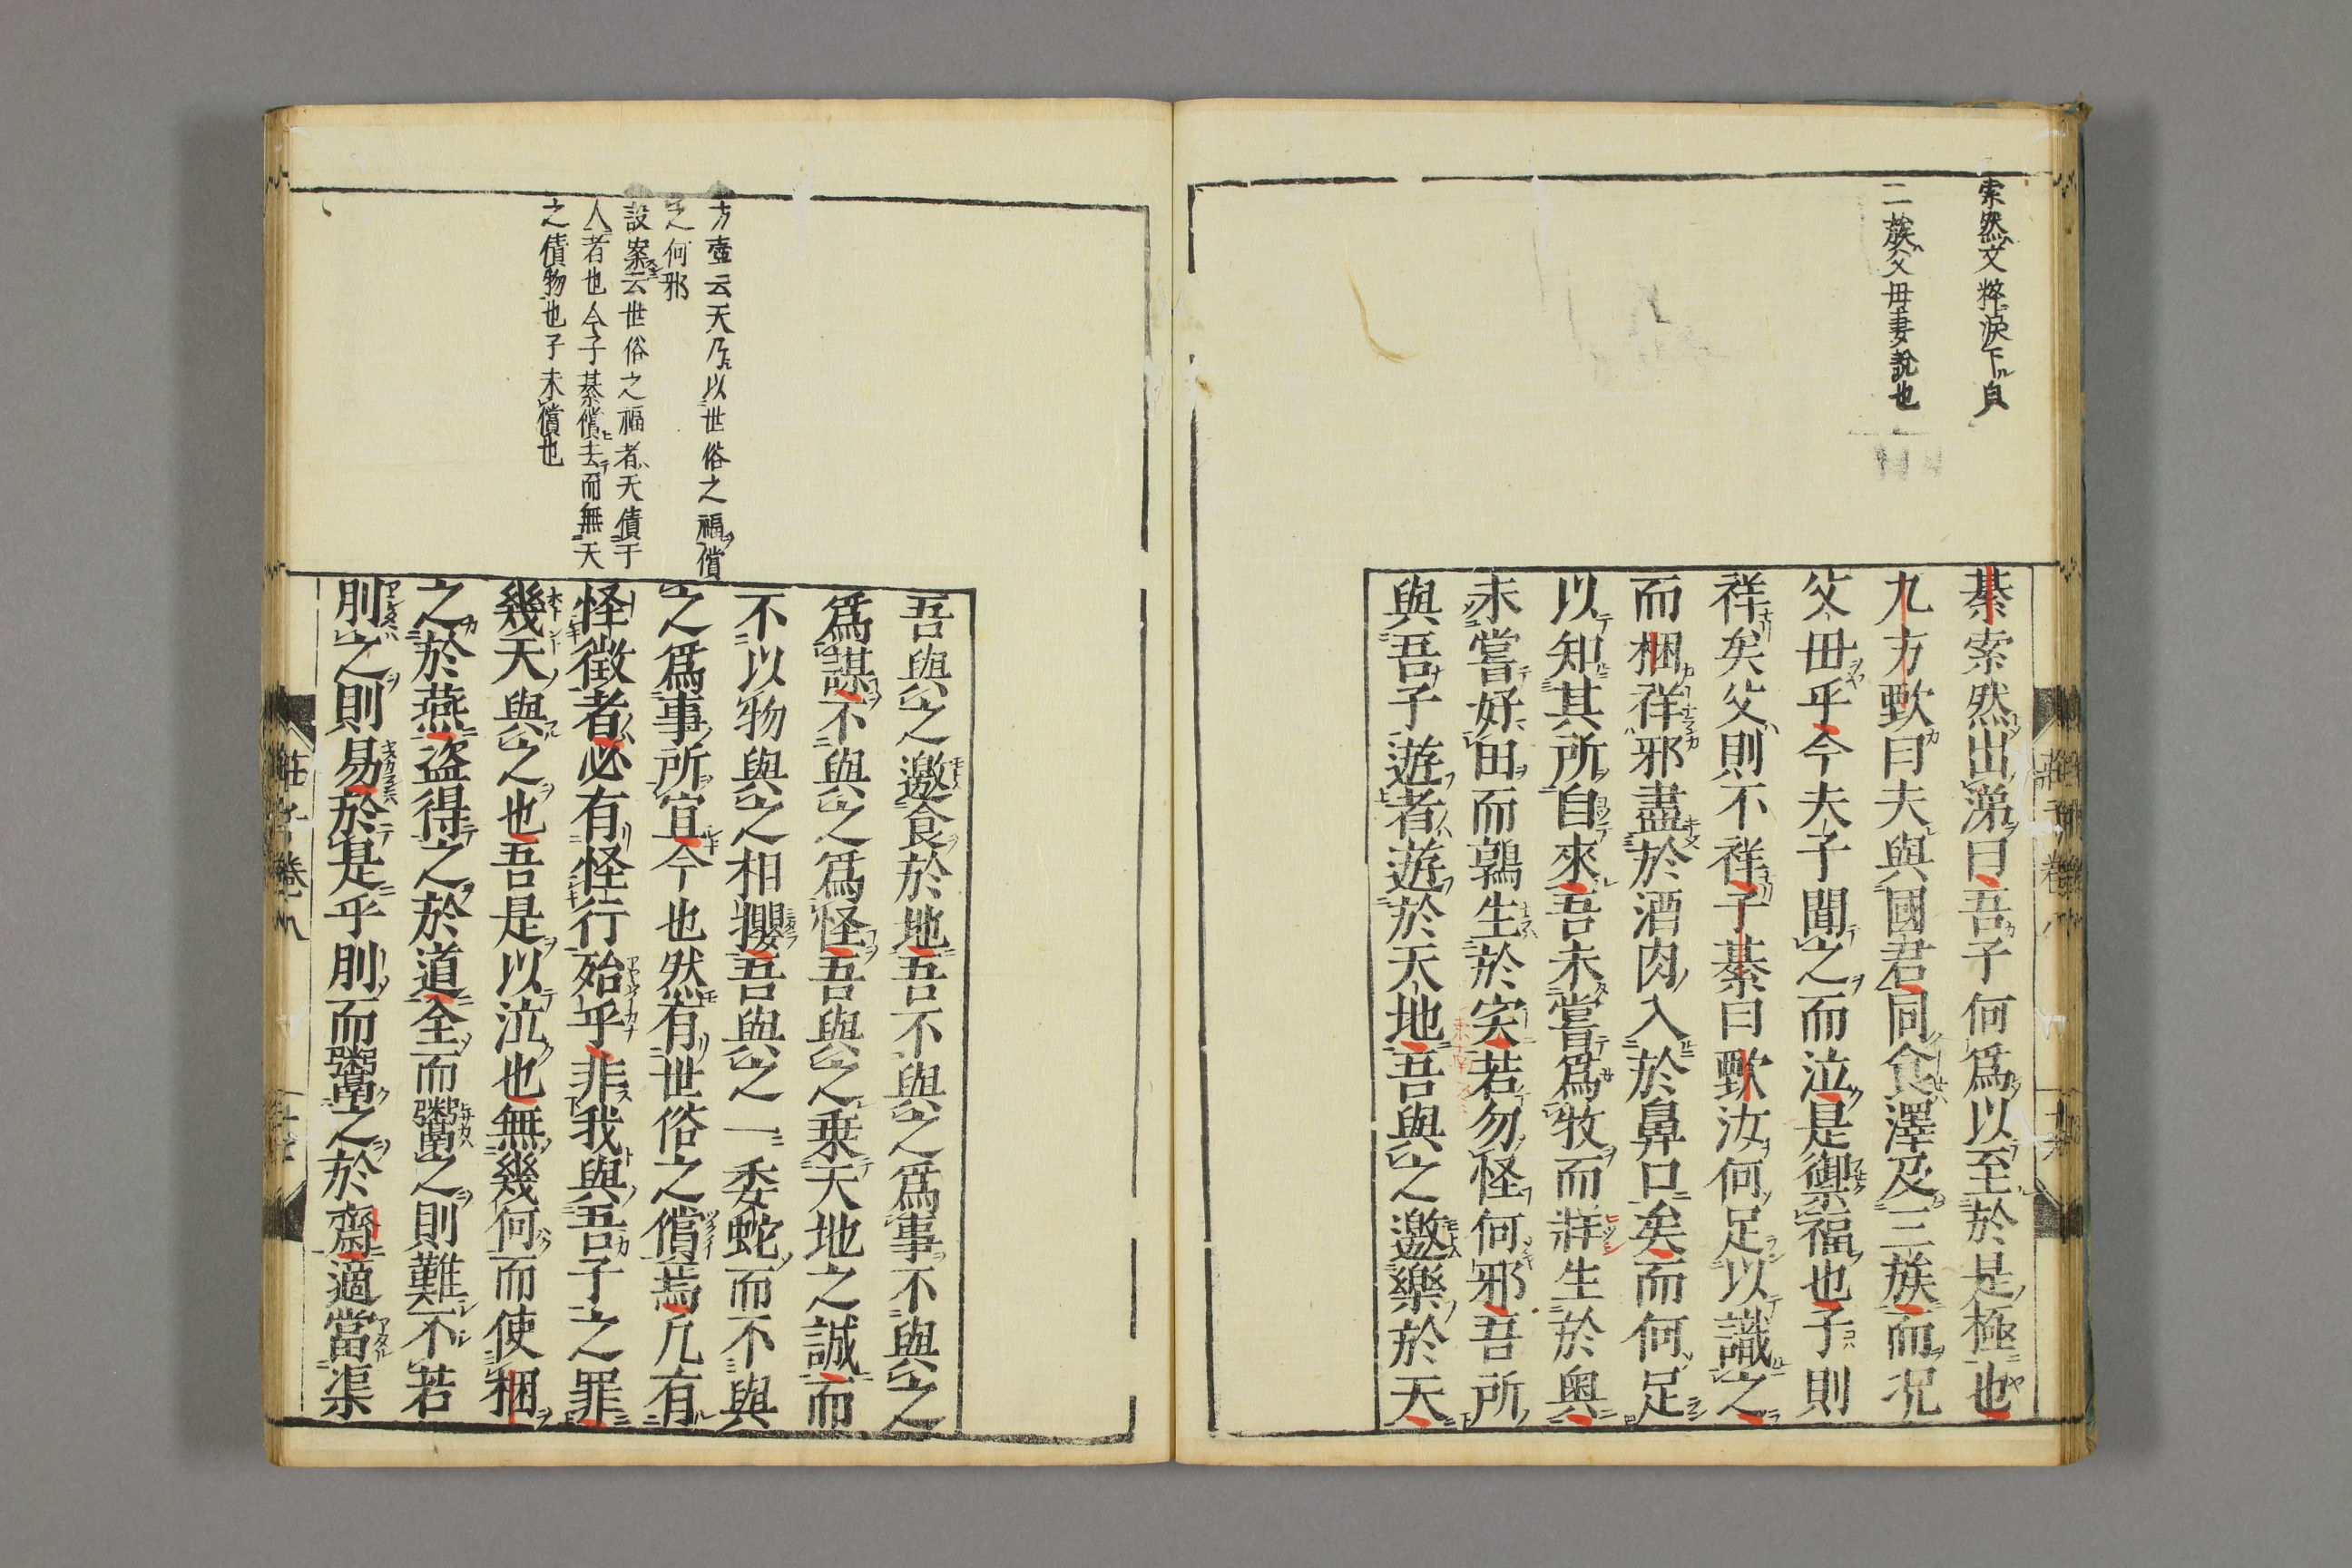 索然文粹淚下皃
三族父母妻說也
綦索然出涕曰吾子何爲以至於是極也
九方歅曰夫與國君同食澤及三族而況
父母乎今夫子聞之而泣是禦福也子則
祥矣父則不祥子綦曰歅汝何足以識之
而梱祥邪盡於酒肉入於鼻口矣而何足
以知其所自來吾未嘗爲牧而牂生於奧
未嘗好田而鶉生於宎若勿怪何邪吾所
與吾子遊者遊於天地吾與之邀樂於天
方壺云天乃以世俗之福償
之何邪
設案云世俗之福者天債于
人者也今子綦償去而無天
之債物也子未償也
吾與之邀食於地吾不與之爲事不與之
爲謀不與之爲怪吾與之乗天地之誠而
不以物與之相攖吾與之一委蛇而不與
之爲事所宜今也然有世俗之償焉凡有
怪徵者必有怪行殆乎非我與吾子之罪
幾天與之也吾是以泣也無幾何而使梱
之於燕盗得之於道全而鬻之則難不若
刖之則易於是乎刖而鬻之於齋適當渠
莊子卷八